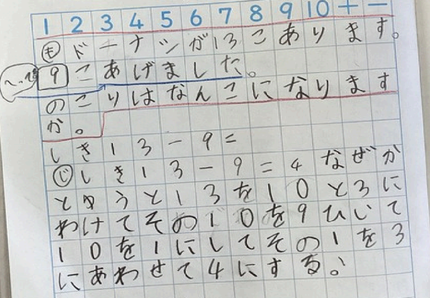 1 2 3 4 5 6 7 8 9 10 + −
も ドーナツが13こあります。
9こあげました。
のこりはなんこになります
か。
しき13−9=
じ しき13−9=4 なぜか
とゆうと13を10と3に
わけてその10を9ひいて
10を1にしてその1を3
にあわせて4にする。